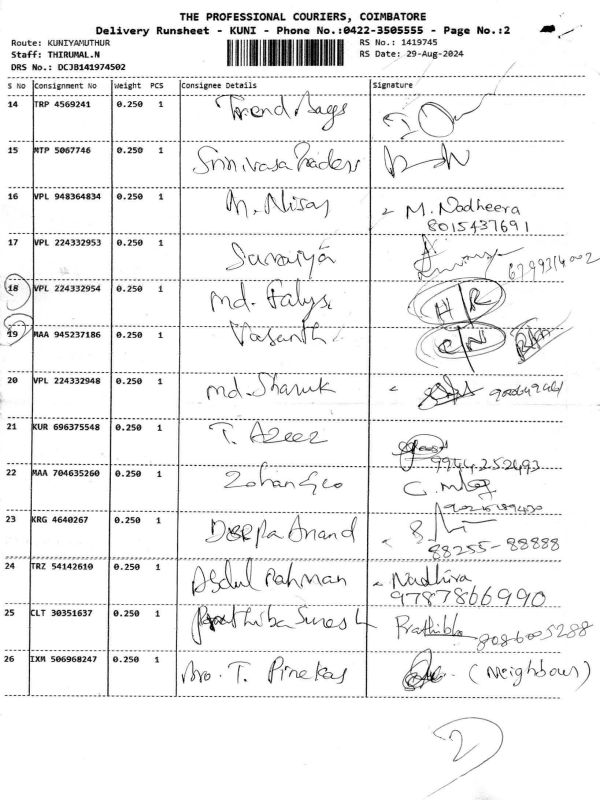 THE PROFESSIONAL COURIERS, COIMBATORE
Delivery Runsheet - KUNI - Phone No.:0422-3505555 - Page No.:2
Route: KUNIYAMUTHUR RS No.: 1419745
Staff: THIRUMAL.N RS Date: 29-Aug-2024
DRS No.: DCJB141974502
S No Consignment No Weight PCS Consignee Details Signature
14 TRP 4569241 0.250 1 Trend Bags
15 MTP 5067746 0.250 1 Srinivasa Traders
16 VPL 948364834 0.250 1 M. Nisar M. Nadheera
8015437691
17 VPL 224332953 0.250 1
18 VPL 224332954 0.250 1 Md. H/R
19 MAA 945237186 0.250 1 Vasanth C/N
20 VPL 224332948 0.250 1 Md. Sharuk
21 KUR 696375548 0.250 1 T. Azeez
9944252493
22 MAA 704635260 0.250 1 Zohan Geo
23 KRG 4640267 0.250 1 Deepa Anand
88255-88888
24 TRZ 54142610 0.250 1 Abdul Rahman Nadhira
9787866990
25 CLT 30351637 0.250 1 Prathiba Suresh Prathibha 8086005288
26 IXM 506968247 0.250 1 T. (Neighbour)
2